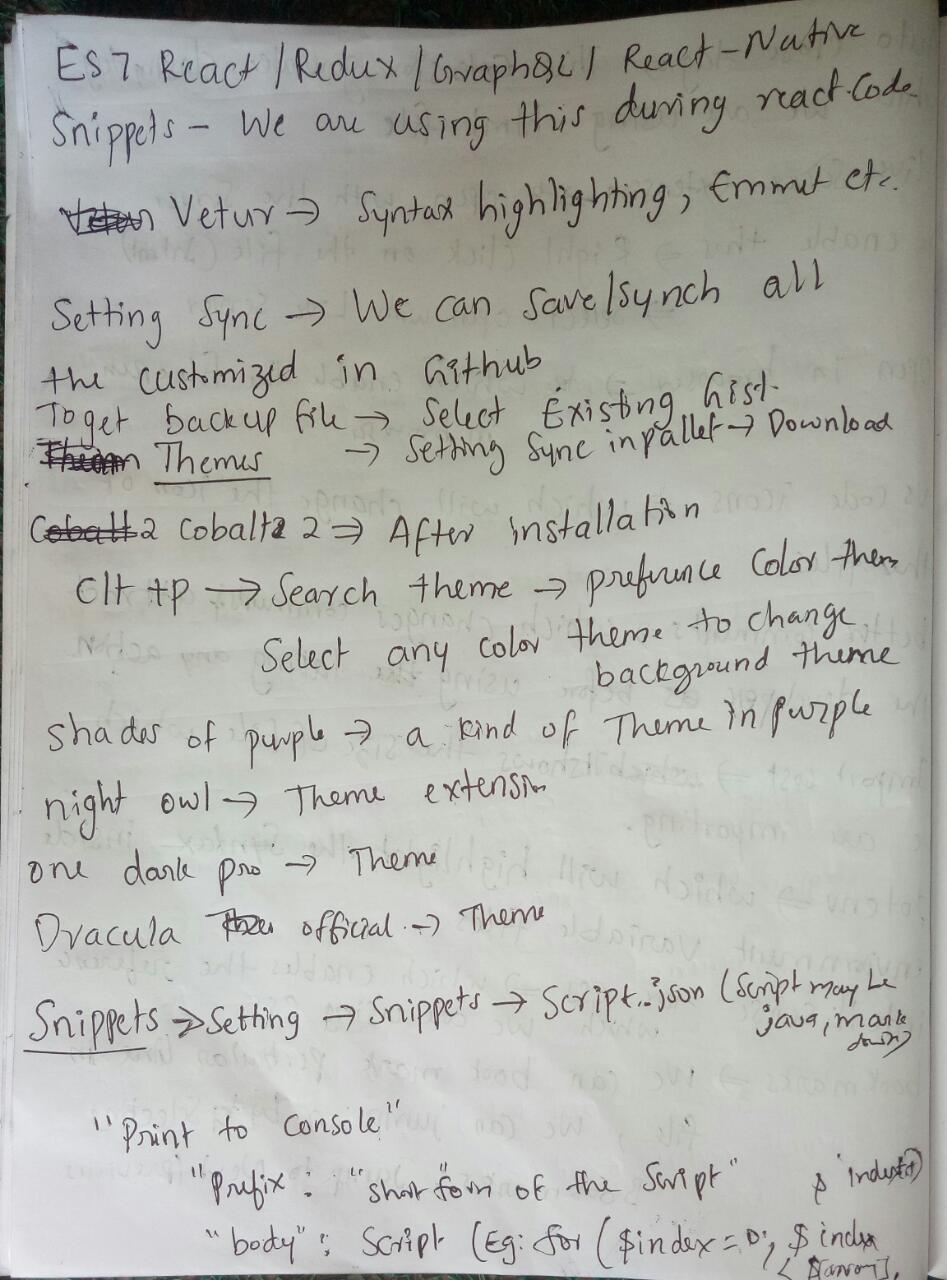 ES7 React / Redux / GraphQL / React-Native
Snippets - We are using this during react code
Vetur → Syntax highlighting, Emmut etc.
Setting Sync → We can save/synch all
the customized in Github
To get backup file → Select Existing Gist.
Themes → Setting Sync in pallet → Download
Cobalt2 2 ⇒ After installation
Clt +p → Search theme → prefrence Color them
Select any color theme to change
background theme
shades of purple → a kind of Theme in purple
night owl → Theme extension
one dark pro → Theme
Dracula official → Theme
Snippets ⇒ Setting → Snippets → Script.json (Script may be
java, mark
down)
"Print to console"
"Prefix": "short form of the Script" $ index++)
"body": Script (Eg: for ($index = 0; $ index